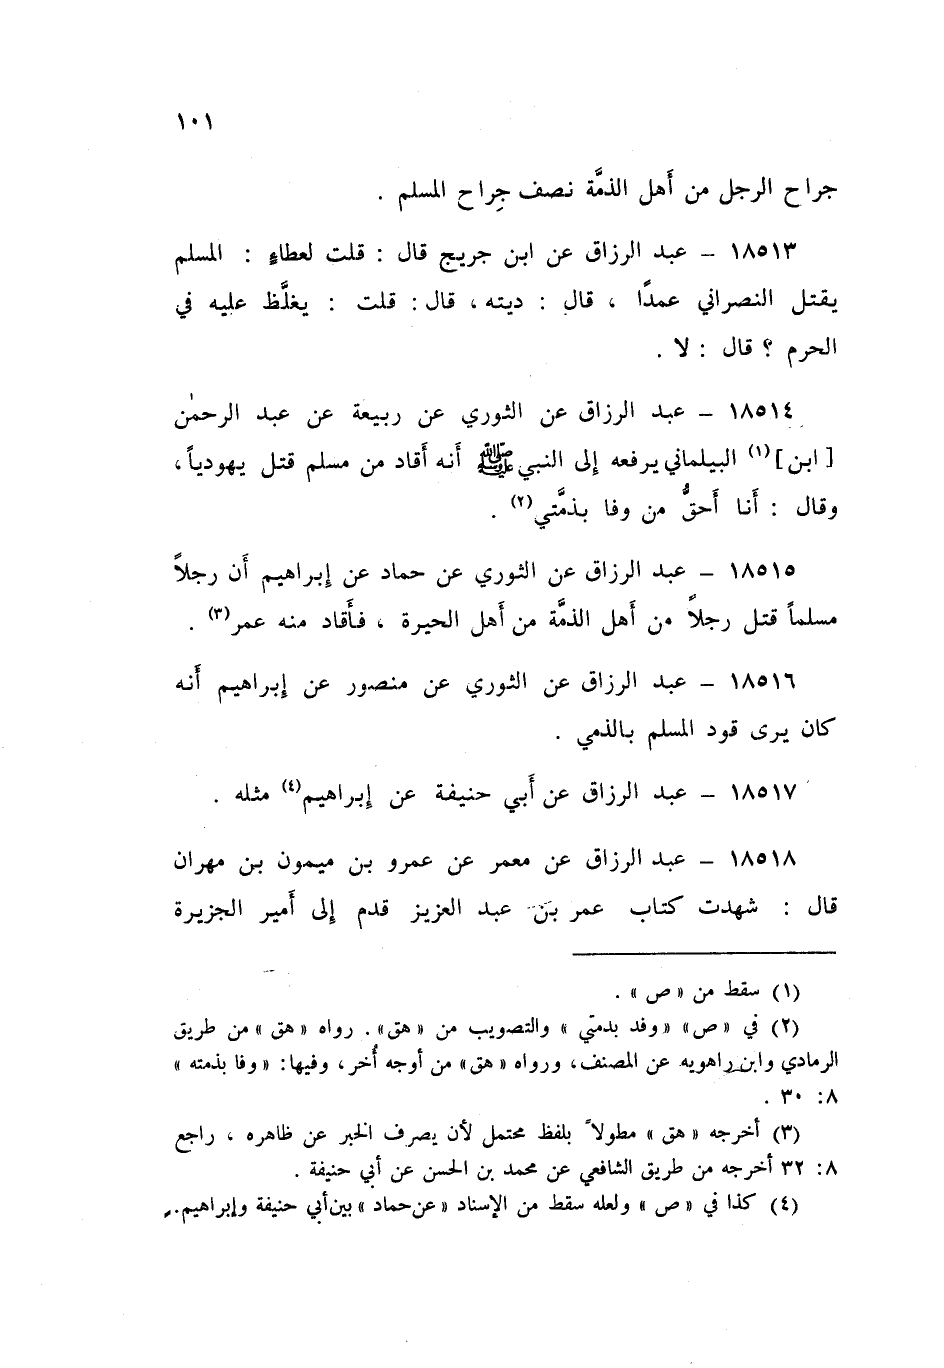 ١٠١
جراح الرجل من أَهل الذمَّة نصف جِراح المسلم .
١٨٥١٣ – عبد الرزاق عن ابن جريج قال : قلت لعطاءٍ : المسلم
يقتل النصراني عمدًا ، قال : ديته ، قال : قلت : يغلَّظ عليه في
الحرم ؟ قال : لا .
١٨٥١٤ – عبد الرزاق عن الثوري عن ربيعة عن عبد الرحمٰن
[ ابن ] (١) البيلماني يرفعه إلى النبي ﷺ أَنه أَقاد من مسلم قتل يهودياً ،
وقال : أَنا أَحقُّ من وفا بذمَّتي (٢) .
١٨٥١٥ – عبد الرزاق عن الثوري عن حماد عن إِبراهيم أَن رجلاً
مسلماً قتل رجلاً من أَهل الذمَّة من أَهل الحيرة ، فأَقاد منه عمر (٣) .
١٨٥١٦ – عبد الرزاق عن الثوري عن منصور عن إِبراهيم أَنه
كان يرى قود المسلم بالذمي .
١٨٥١٧ – عبد الرزاق عن أَبي حنيفة عن إِبراهيم (٤) مثله .
١٨٥١٨ – عبد الرزاق عن معمر عن عمرو بن ميمون بن مهران
قال : شهدت كتاب عمر بن عبد العزيز قدم إِلى أَمير الجزيرة
(١) سقط من « ص » .
(٢) في « ص » « وفد بدمتي » والتصويب من « هق » . رواه « هق » من طريق
الرمادي وابن راهويه عن المصنف ، ورواه « هق » من أوجه أُخر ، وفيها : « وفا بذمته »
٨ : ٣٠ .
(٣) أخرجه « هق » مطولاً بلفظ محتمل لأن يصرف الخبر عن ظاهره ، راجع
٨ : ٣٢ أخرجه من طريق الشافعي عن محمد بن الحسن عن أبي حنيفة .
(٤) كذا في « ص » ولعله سقط من الإسناد « عن حماد » بين أبي حنيفة وإبراهيم .